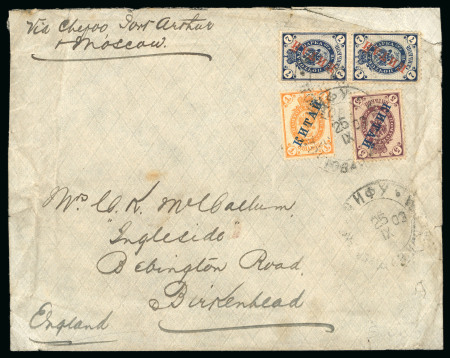 Via Chefoo, Port Arthur
& Moscow.
7 7 7 7
КИТАЙ КИТАЙ
ЧИФУ
25 03
IX
ЧИФУ
25 03
IX
Mrs C. K. McCallum,
"Ingleside"
Bebington Road,
Birkenhead
England